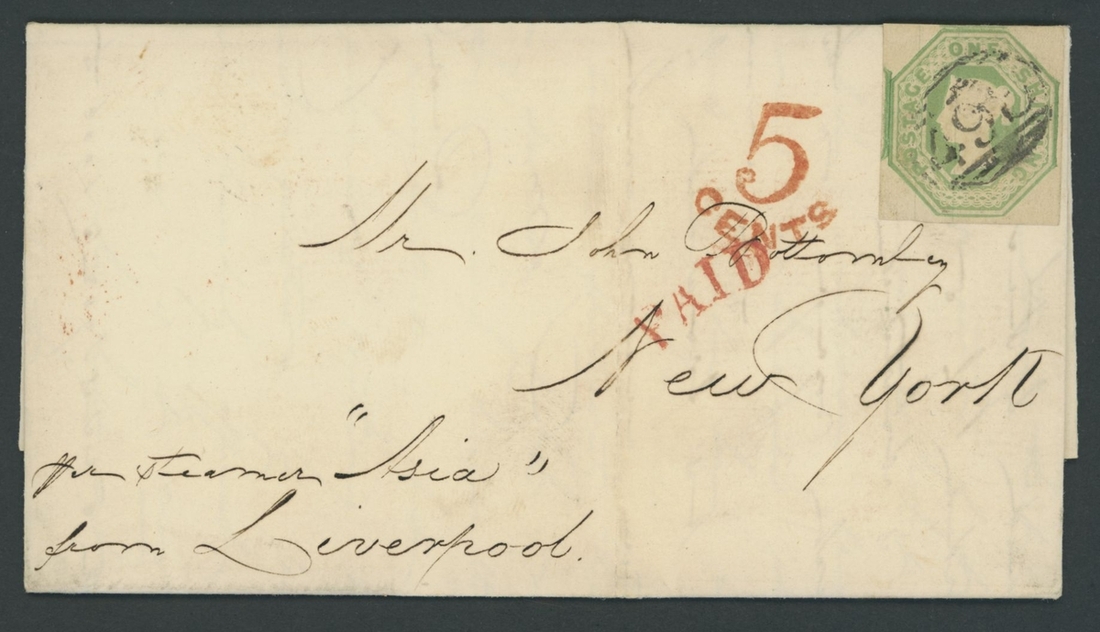 POSTAGE ONE SH
5
CENTS
PAID
Mr. John Bottomley
New York
per steamer "Asia"
from Liverpool.